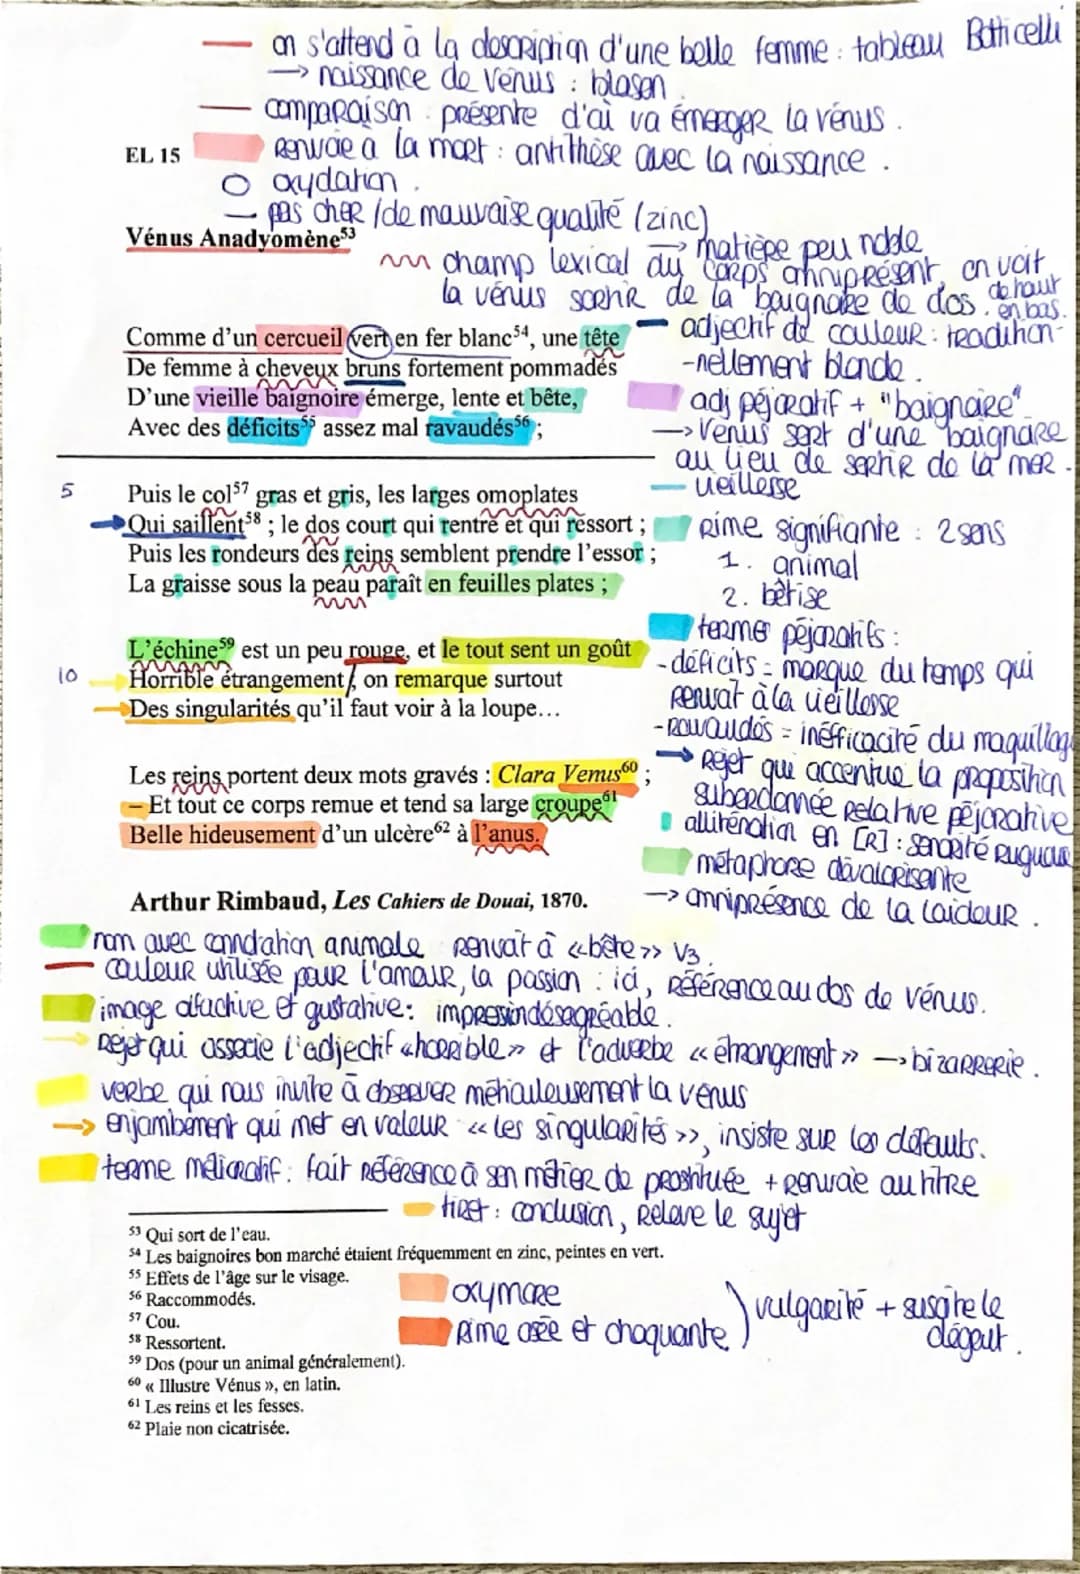 on s'attend à la description d'une belle femme : tableau Botticelli
→ naissance de Vénus : blason
comparaison : présente d'où va émerger la vénus.
EL 15
Renvoie à la mort : antithèse avec la naissance.
oxydation.
pas cher / de mauvaise qualité (zinc)
→ matière peu noble
Vénus Anadyomène⁵³
champ lexical du corps omniprésent, on voit
la vénus sortir de la baignoire de dos. de haut en bas.
Comme d'un cercueil vert en fer blanc⁵⁴, une tête
De femme à cheveux bruns fortement pommadés
D'une vieille baignoire émerge, lente et bête,
Avec des déficits⁵⁵ assez mal ravaudés⁵⁶ ;
adjectif de couleur : tradition-
-nellement blonde.
adj péjoratif + "baignoire"
→ Vénus sort d'une baignoire
au lieu de sortir de la mer.
vieillesse
5
Puis le col⁵⁷ gras et gris, les larges omoplates
Qui saillent⁵⁸ ; le dos court qui rentre et qui ressort ;
Puis les rondeurs des reins semblent prendre l'essor ;
La graisse sous la peau paraît en feuilles plates ;
Rime signifiante : 2 sens
1. animal
2. bêtise
termes péjoratifs :
- déficits = marque du temps qui
renvoit à la vieillesse
- Ravaudés = inéfficacité du maquillage
L'échine⁵⁹ est un peu rouge, et le tout sent un goût
10
Horrible étrangement, on remarque surtout
Des singularités qu'il faut voir à la loupe...
→ Rejet qui accentue la proposition
subordonnée relative péjorative
allitération en [R] : sonorité rugueuse
métaphore dévalorisante
→ omniprésence de la laideur.
Les reins portent deux mots gravés : Clara Venus⁶⁰ ;
– Et tout ce corps remue et tend sa large croupe⁶¹
Belle hideusement d'un ulcère⁶² à l'anus.
Arthur Rimbaud, Les Cahiers de Douai, 1870.
nom avec connotation animale renvoit à «bête» V3.
couleur utilisée pour l'amour, la passion : ici, référence au dos de Vénus.
image olfactive et gustative : impression désagréable.
Rejet qui associe l'adjectif «horrible» et l'adverbe «étrangement» → bizarrerie.
verbe qui nous invite à observer méticuleusement la vénus
→ enjambement qui met en valeur «les singularités», insiste sur les défauts.
terme mélioratif : fait référence à son métier de prostituée + renvoie au titre
tiret : conclusion, relève le sujet
⁵³ Qui sort de l'eau.
⁵⁴ Les baignoires bon marché étaient fréquemment en zinc, peintes en vert.
⁵⁵ Effets de l'âge sur le visage.
⁵⁶ Raccommodés.
⁵⁷ Cou.
⁵⁸ Ressortent.
⁵⁹ Dos (pour un animal généralement).
⁶⁰ « Illustre Vénus », en latin.
⁶¹ Les reins et les fesses.
⁶² Plaie non cicatrisée.
oxymore
Rime osée et choquante
) vulgarité + suscite le
dégout.